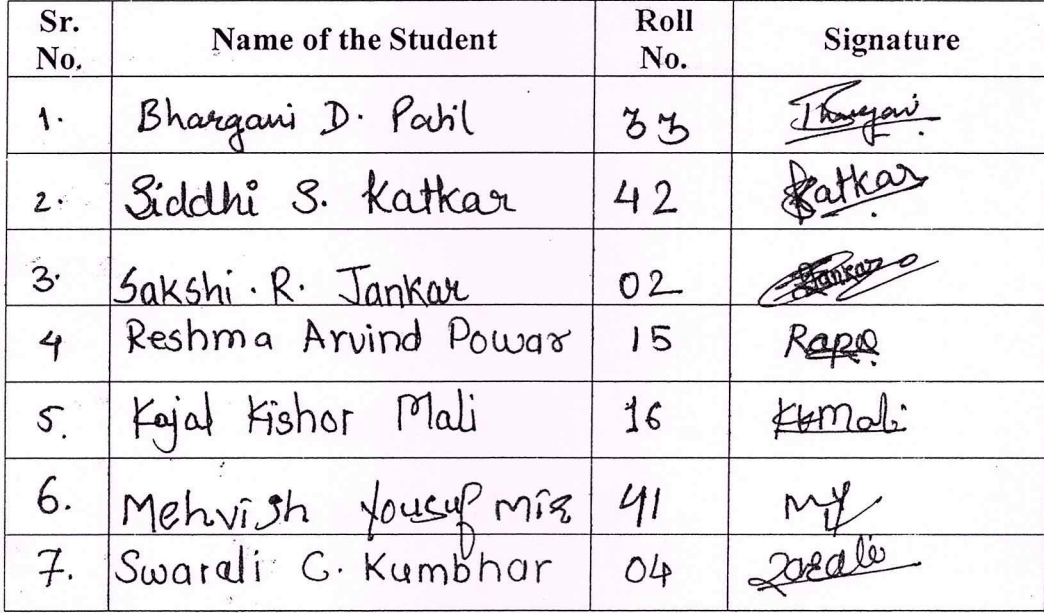 Sr. No. Name of the Student Roll No. Signature
1. Bhargavi D. Patil 33
2. Siddhi S. Katkar 42 Katkar
3. Sakshi . R. Jankar 02 Jankar
4 Reshma Arvind Powar 15
5. Kajal Kishor Mali 16 KKMali
6. Mehvish Yousuf Mir 41 MY
7. Swarali C. Kumbhar 04